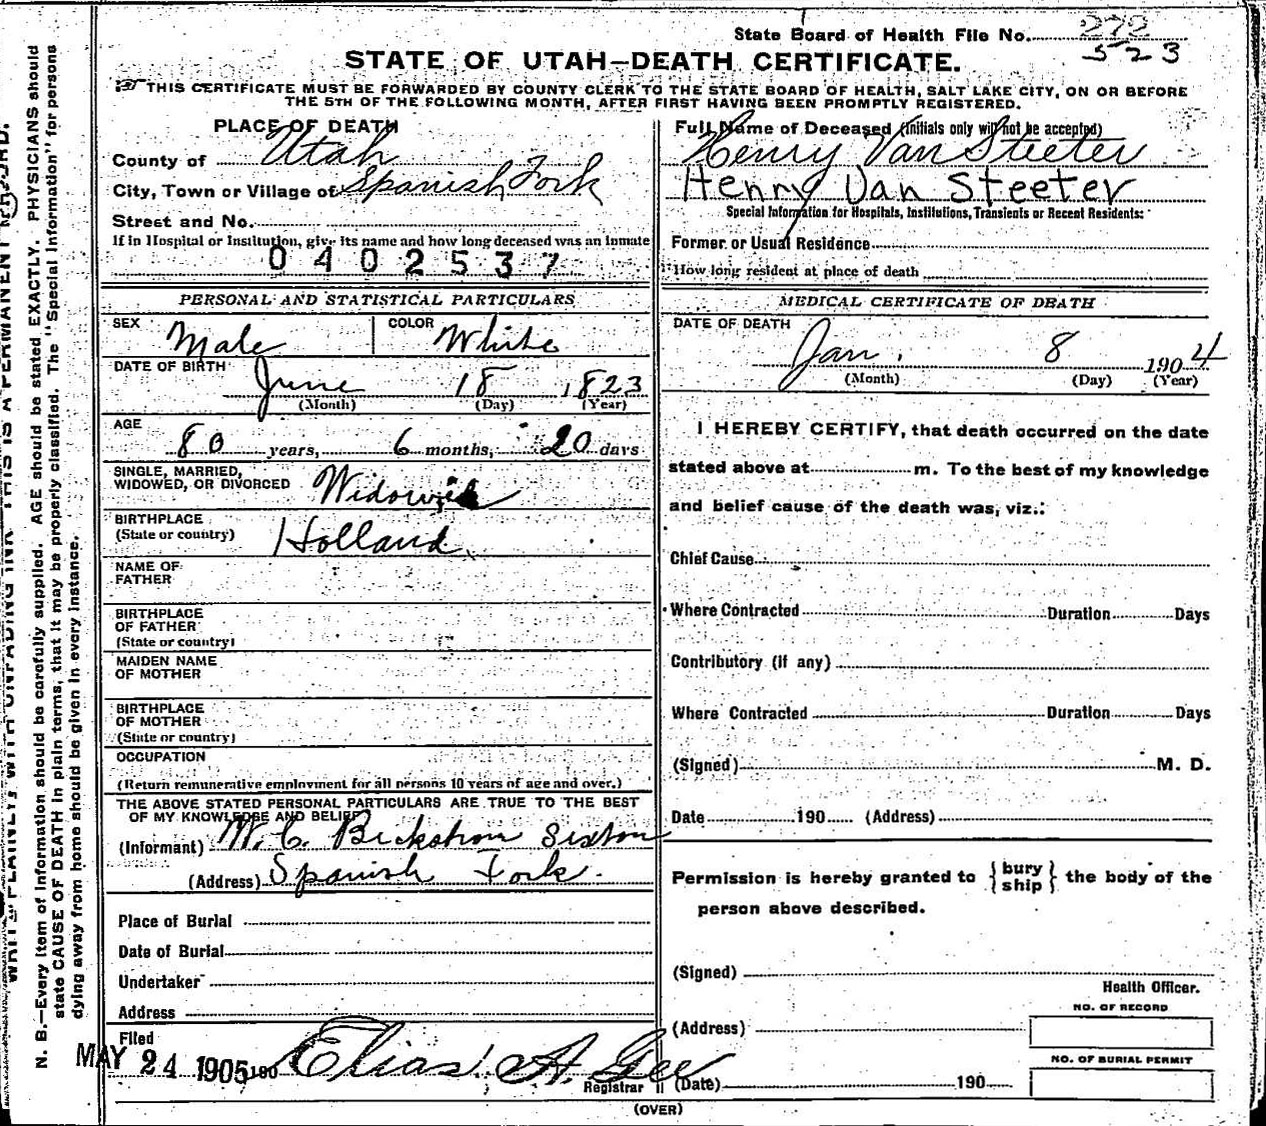 State Board of Health File No. 272
523
STATE OF UTAH—DEATH CERTIFICATE.
THIS CERTIFICATE MUST BE FORWARDED BY COUNTY CLERK TO THE STATE BOARD OF HEALTH, SALT LAKE CITY, ON OR BEFORE
THE 5TH OF THE FOLLOWING MONTH, AFTER FIRST HAVING BEEN PROMPTLY REGISTERED.
PLACE OF DEATH
County of Utah
City, Town or Village of Spanish Fork
Street and No.
If in Hospital or Institution, give its name and how long deceased was an inmate
0402537
Full Name of Deceased (Initials only will not be accepted)
Henry Van Steeter
Henry Van Steeter
Special Information for Hospitals, Institutions, Transients or Recent Residents:
Former or Usual Residence
How long resident at place of death
PERSONAL AND STATISTICAL PARTICULARS
SEX Male COLOR White
DATE OF BIRTH June 18 1823
(Month) (Day) (Year)
AGE
80 years, 6 months, 20 days
SINGLE, MARRIED,
WIDOWED, OR DIVORCED Widowed
BIRTHPLACE
(State or country) Holland
NAME OF
FATHER
BIRTHPLACE
OF FATHER
(State or country)
MAIDEN NAME
OF MOTHER
BIRTHPLACE
OF MOTHER
(State or country)
OCCUPATION
(Return remunerative employment for all persons 10 years of age and over.)
THE ABOVE STATED PERSONAL PARTICULARS ARE TRUE TO THE BEST
OF MY KNOWLEDGE AND BELIEF
(Informant) W. C. Beckstrom Sexton
(Address) Spanish Fork.
Place of Burial
Date of Burial
Undertaker
Address
Filed
MAY 24 1905 190 Elias A. Gee
Registrar
MEDICAL CERTIFICATE OF DEATH
DATE OF DEATH
Jan. 8 1904
(Month) (Day) (Year)
I HEREBY CERTIFY, that death occurred on the date
stated above at m. To the best of my knowledge
and belief cause of the death was, viz.:
Chief Cause
Where Contracted Duration Days
Contributory (if any)
Where Contracted Duration Days
(Signed) M. D.
Date 190 (Address)
Permission is hereby granted to {bury
ship} the body of the
person above described.
(Signed)
Health Officer.
NO. OF RECORD
(Address)
NO. OF BURIAL PERMIT
(Date) 190
(OVER)
WRITE PLAINLY, WITH UNFADING INK—THIS IS A PERMANENT RECORD.
N. B.—Every item of information should be carefully supplied. AGE should be stated EXACTLY. PHYSICIANS should
state CAUSE OF DEATH in plain terms, that it may be properly classified. The "Special Information" for persons
dying away from home should be given in every instance.